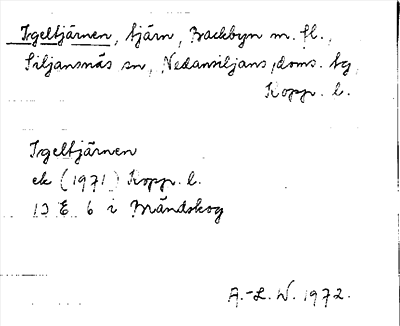 Igeltjärnen, tjärn, Backbyn m. fl.,
Siljansnäs sn, Nedansiljans doms. tg,
Kopp. l.
Igeltjärnen
ek (1971) Kopp. l.
13 E 6 i Mråndskog
A.-L. W. 1972.